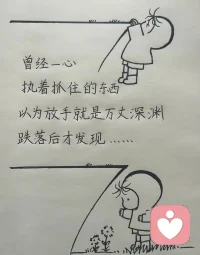 曾经一心
执着抓住的东西
以为放手就是万丈深渊
跌落后才发现……